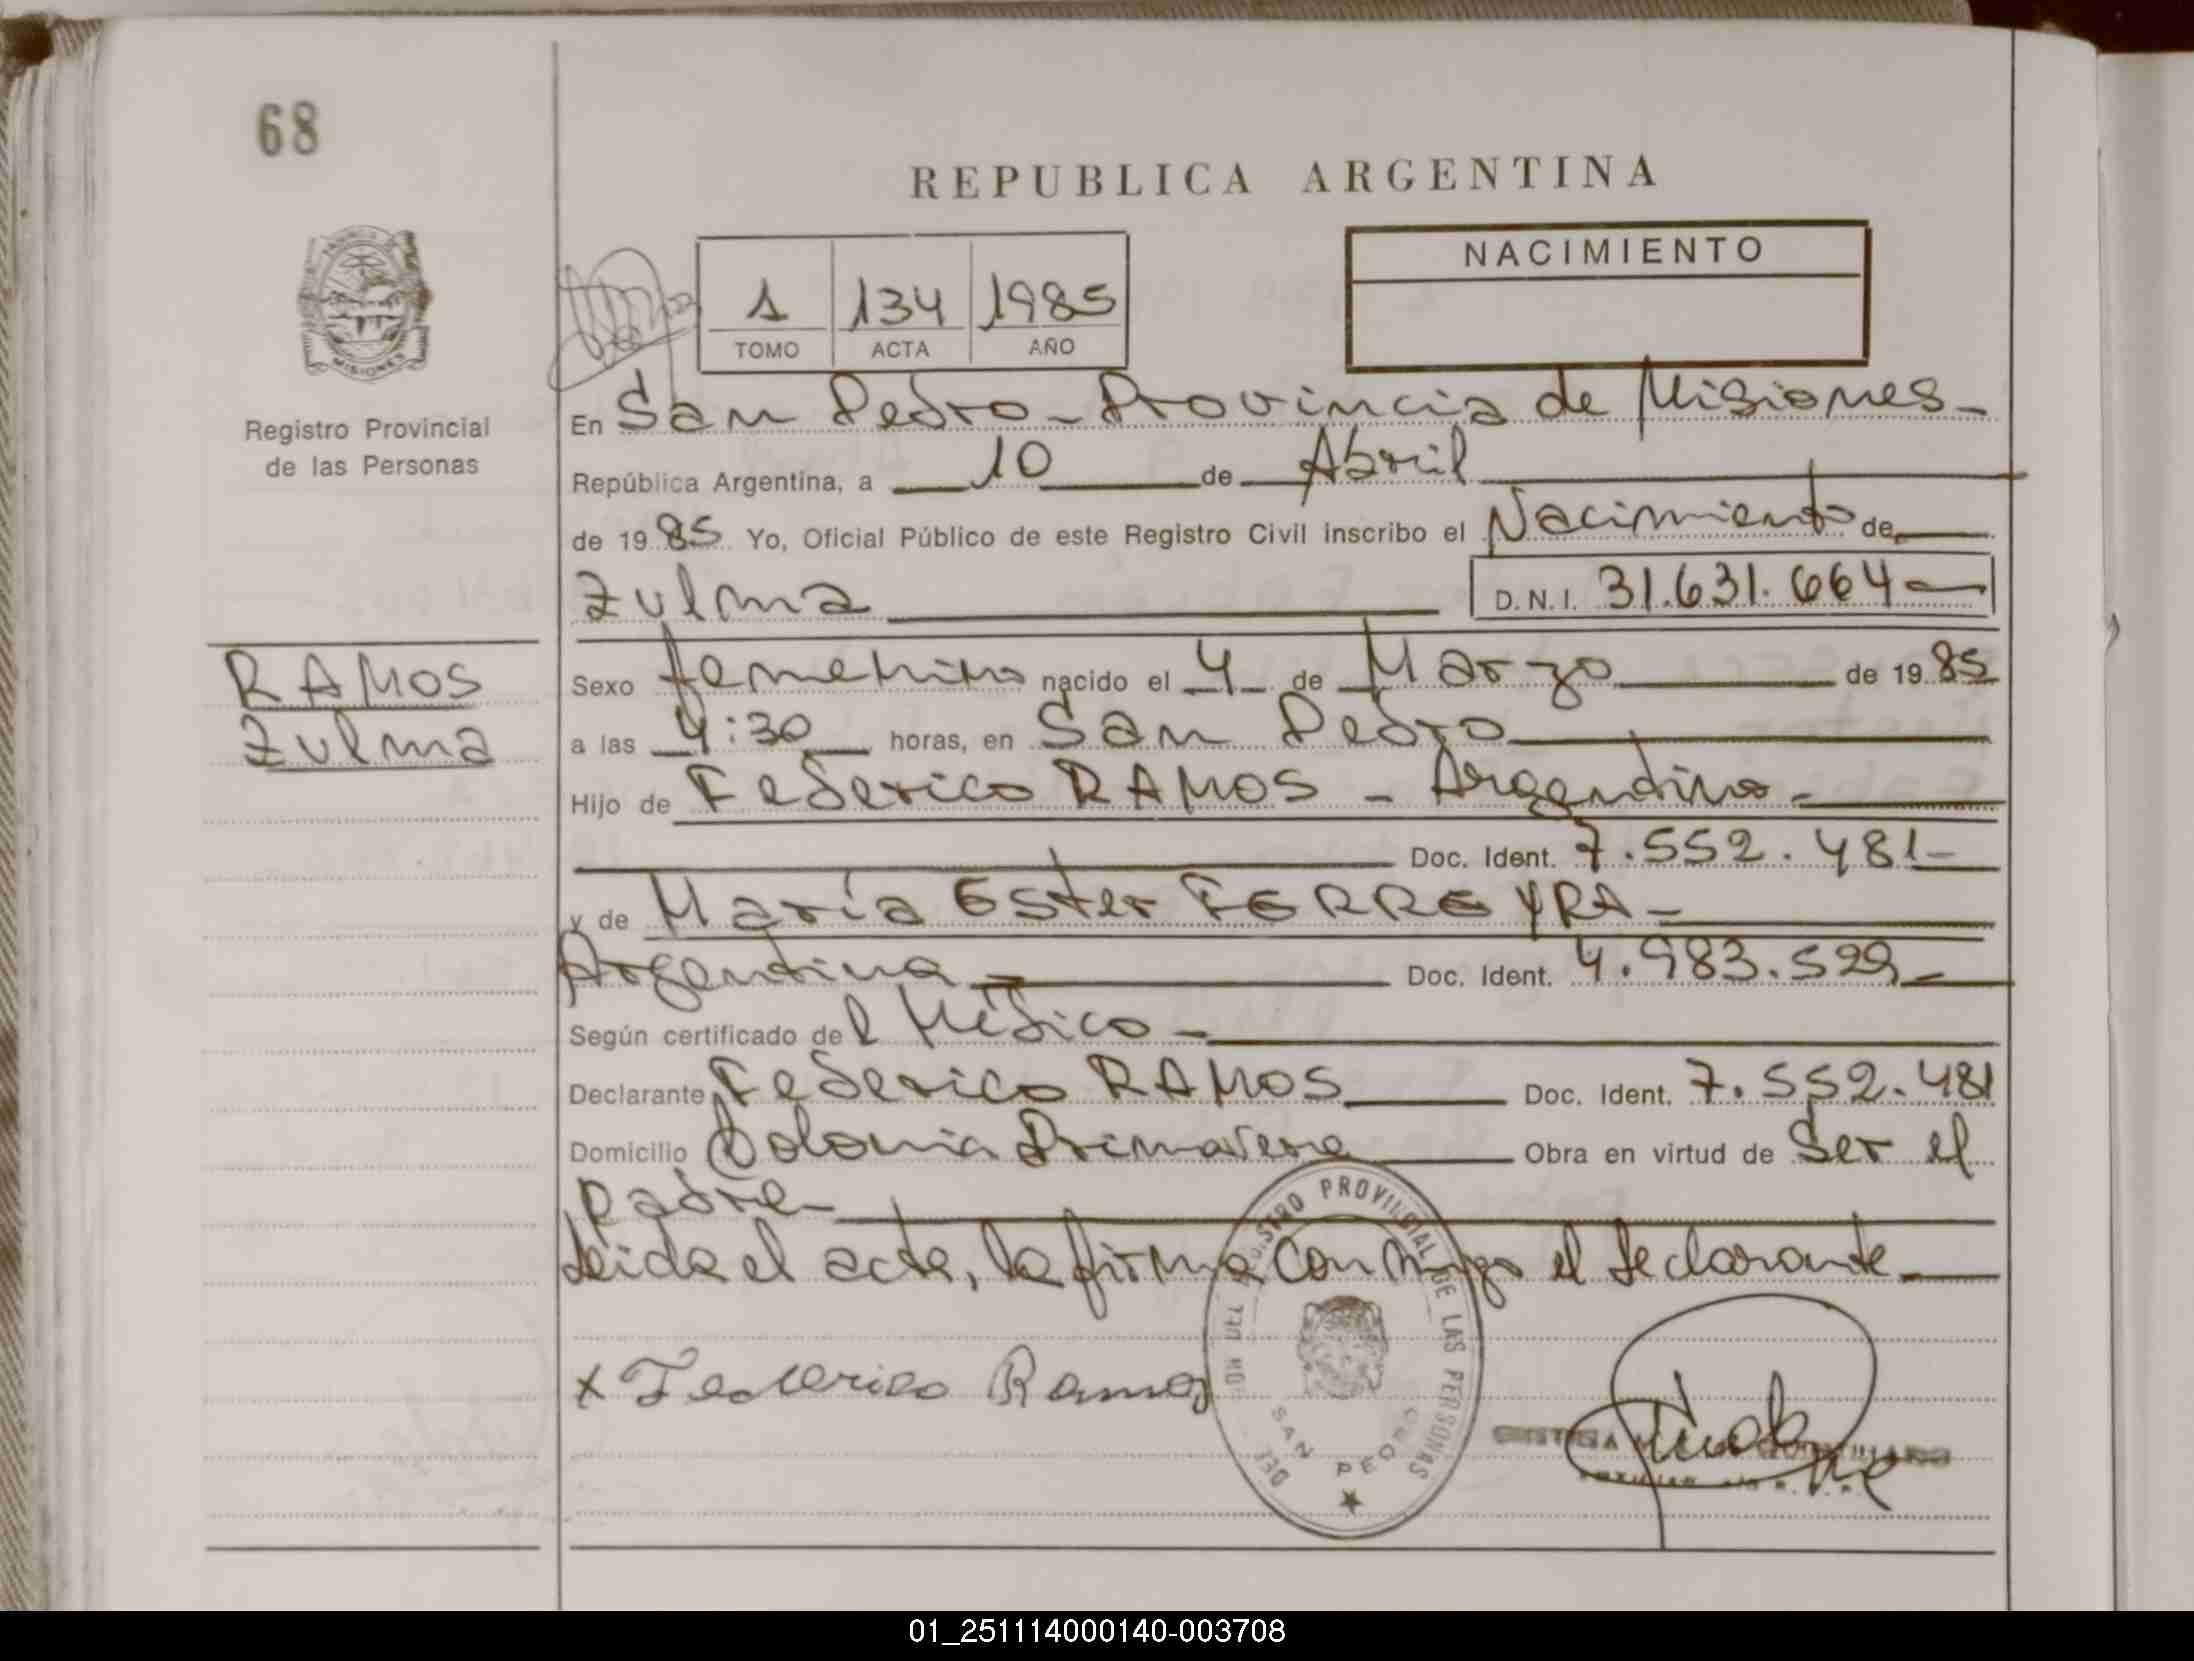 68
REPUBLICA ARGENTINA
NACIMIENTO
1 134 1985
TOMO ACTA AÑO
MISIONES
Registro Provincial
de las Personas
En San Pedro - Provincia de Misiones -
República Argentina, a 10 de Abril
de 1985 Yo, Oficial Público de este Registro Civil inscribo el Nacimiento de
Zulma D.N.I. 31.631.664
RAMOS
Zulma
Sexo femenino nacido el 4 de Marzo de 1985
a las 4:30 horas, en San Pedro
Hijo de Federico RAMOS - Argentino -
Doc. Ident. 7.552.481 -
y de María Ester FERREYRA -
Argentina Doc. Ident. 4.983.529 -
Según certificado del Médico -
Declarante Federico RAMOS Doc. Ident. 7.552.481
Domicilio Colonia Primavera Obra en virtud de Ser el
Padre -
Leida el acta, la firma conmigo el declarante -
x Federico Ramos
REGISTRO PROVINCIAL DE LAS PERSONAS
SAN PEDRO
01_251114000140-003708